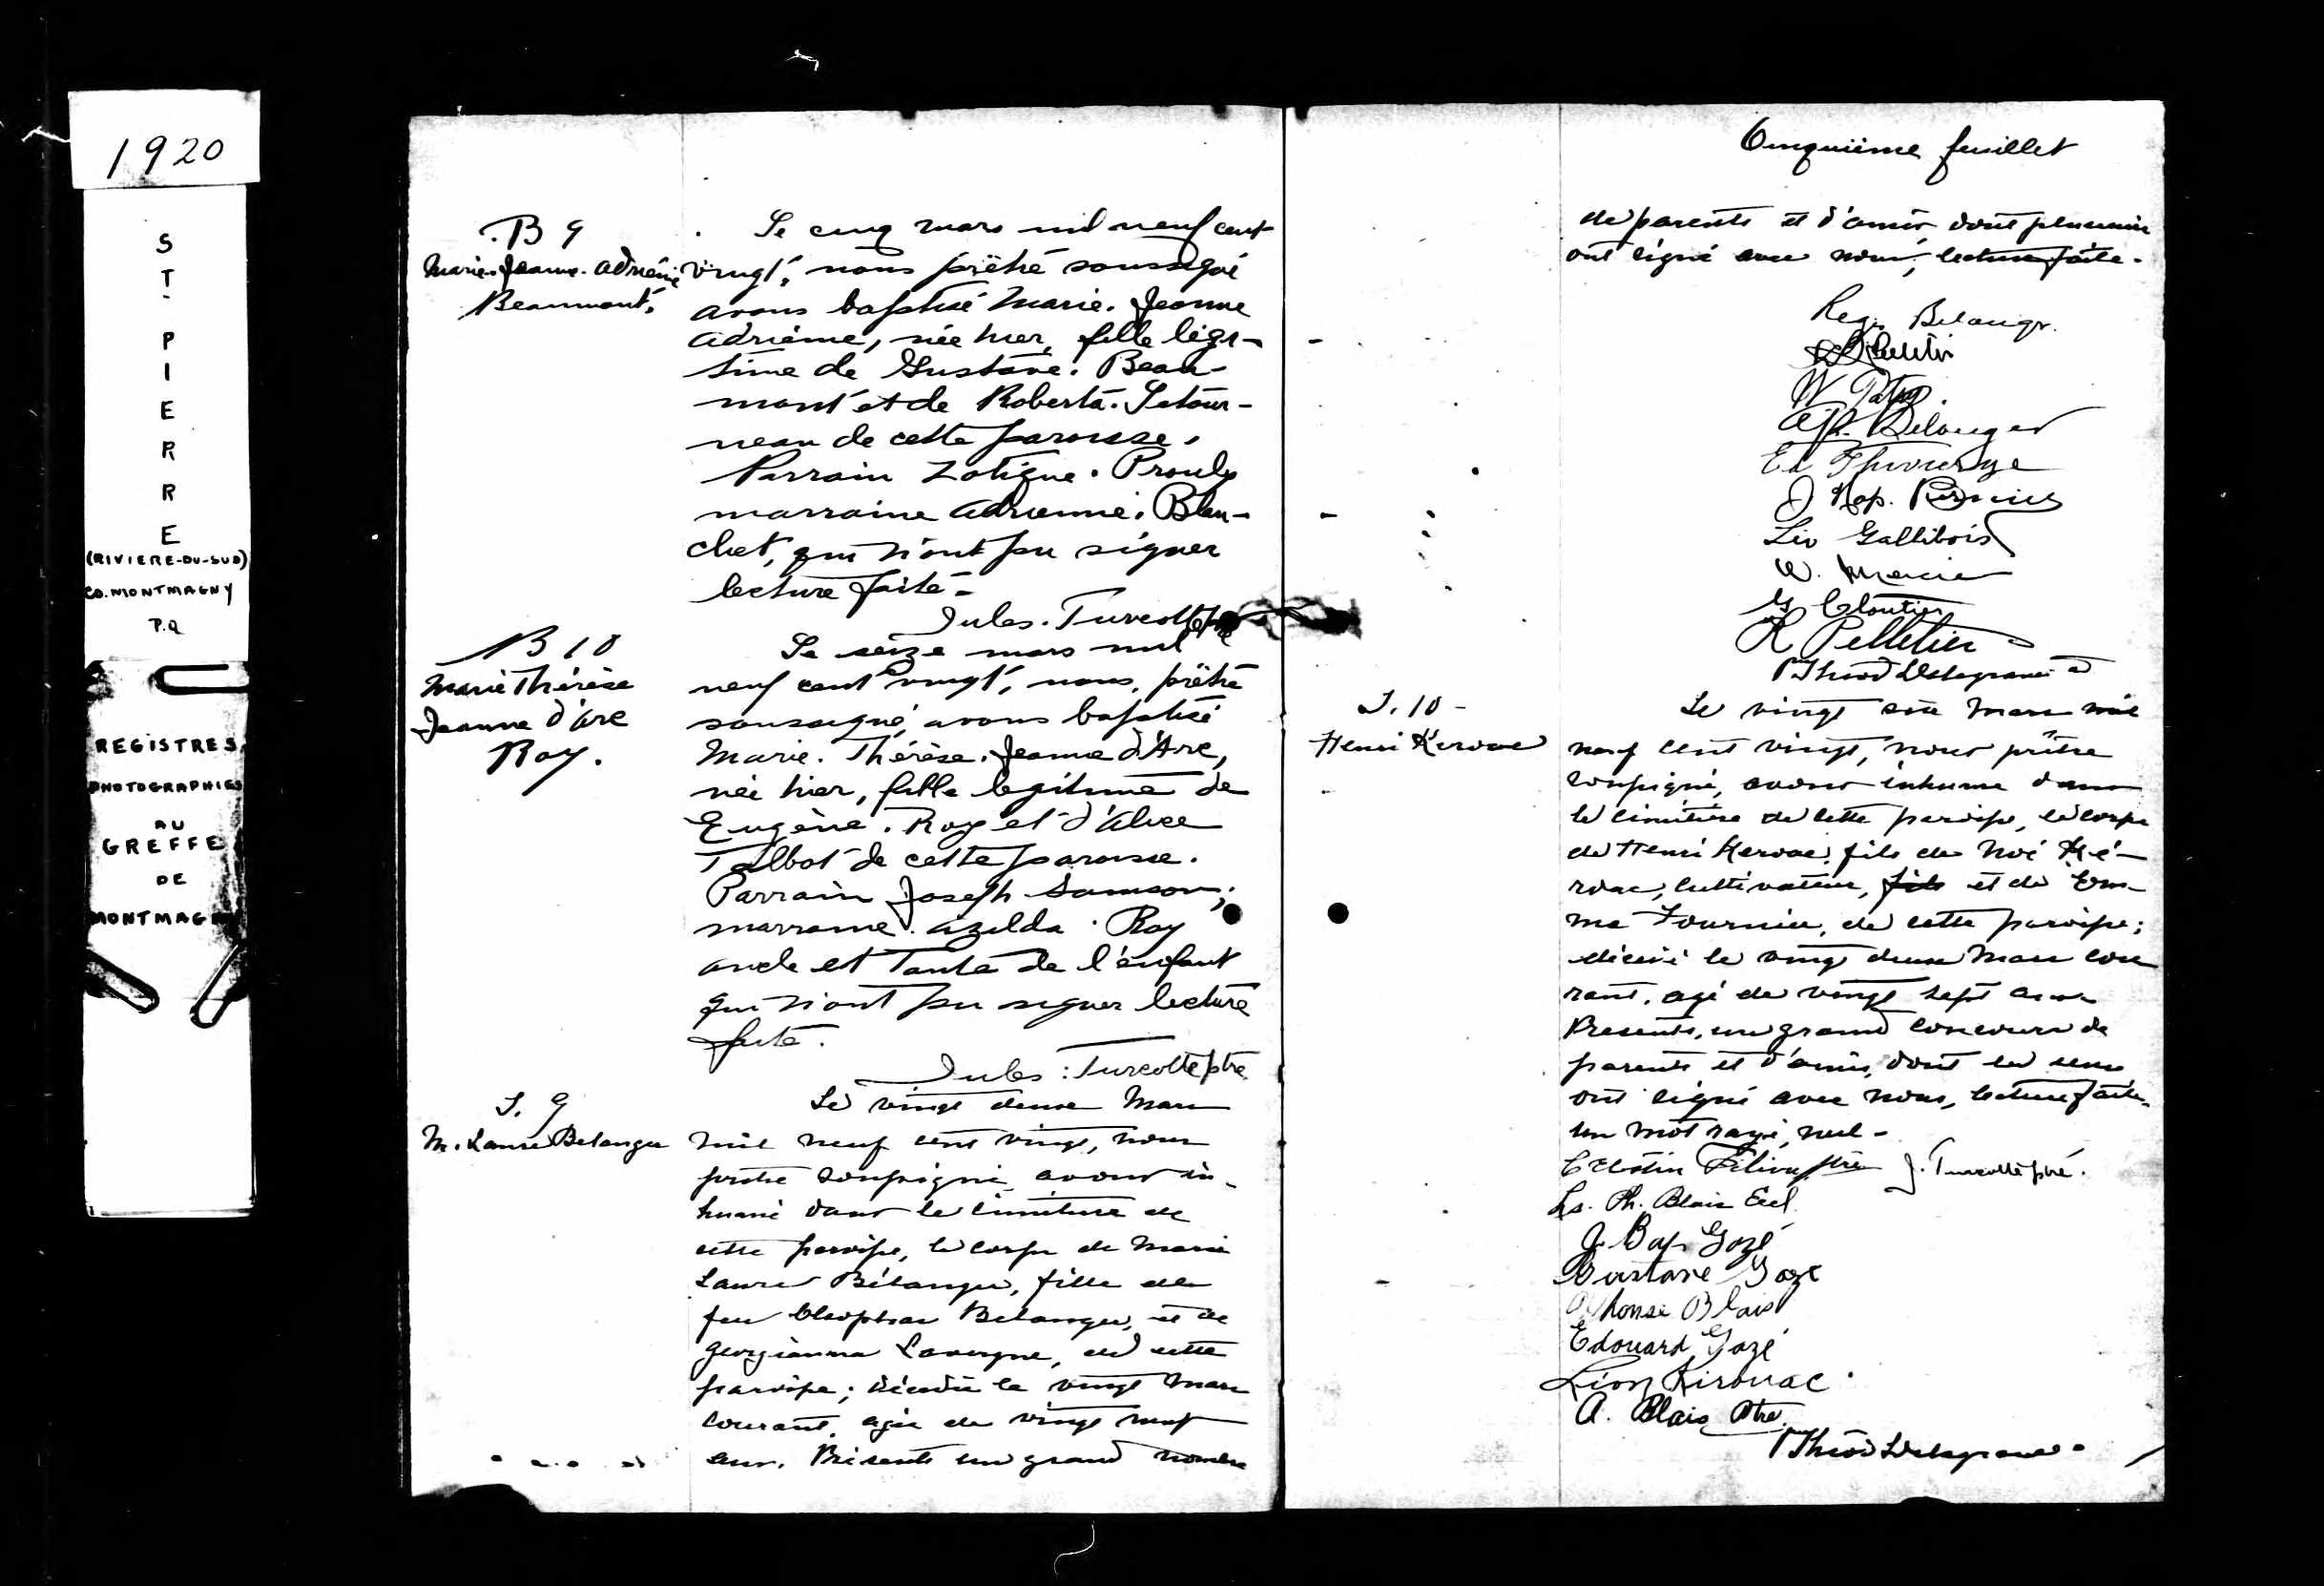 1920
ST-PIERRE
(RIVIERE-DU-SUD)
CO. MONTMAGNY
P.Q
REGISTRES
PHOTOGRAPHIES
AU
GREFFE
DE
MONTMAGNY
B 9
Marie-Jeanne-Adriène
Beaumont.
Le cinq mars mil neuf cent
vingt, nous prêtre soussigné
avons baptisé Marie. Jeanne
Adriène, née hier, fille légi-
time de Gustave. Beau-
mont et de Roberta. Letour-
neau de cette paroisse.
Parrain Zotique. Proulx
marraine Adrienne. Blan-
chet, qui n'ont pu signer
lecture faite-
Jules. Turcotte ptre
B 10
Marie Thérèse
Jeanne d'Arc
Roy.
Le seize mars mil
neuf cent vingt, nous, prêtre
soussigné, avons baptisé
Marie. Thérèse. Jeanne d'Arc,
née hier, fille légitime de
Eugène. Roy et d'Alice
Talbot de cette paroisse.
Parrain Joseph Samson;
marraine. Azelda. Roy
oncle et tante de l'enfant
qui n'ont pu signer lecture
faite.
Jules: Turcotte ptre
S. 9
M. Laure Belanger
Le vingt deux Mars
mil neuf cent vingt, nous
prêtre soussigné, avons in-
humé dans le cimitière de
cette paroisse, le corps de Marie
Laure Bélanger, fille de
feu Cléophas Belanger, et de
Georgianna Lavergne, de cette
paroisse; décédée le vingt Mars
courant, agée de vingt neuf
ans. Présents un grand nombre
Cinquième feuillet
de parents et d'amis dont plusieurs
ont signé avec nous, lecture faite.
Reg. Belanger.
Alp. Belanger
Ed Thivierge
J Nap. Bernier
Léo Gallibois
W. Mercier
G Cloutier
R Pelletier
P Théod Delagrave
S. 10-
Henri Kérouac
Le vingt six Mars mil
neuf cent vingt, nous prêtre
soussigné, avons inhumé dans
le cimitière de cette paroisse, le corps
de Henri Kerouac, fils de Noé Ké-
rouac, cultivateur, fils et de Em-
ma Fournier, de cette paroisse;
décédé le vingt deux Mars cou
rant, agé de vingt sept ans.
Présents, un grand concours de
parents et d'amis, dont
ont signé avec nous, lecture faite.
un mot rayé, nul-
J. Turcotte ptre.
Ls. Ph. Blais Eccl.
J. Bap Gozé
Gustave Goze
Alphonse Blais
Edouard Gozé
Léon Kirouac.
A. Blais Ptre
P Théod Delagrave